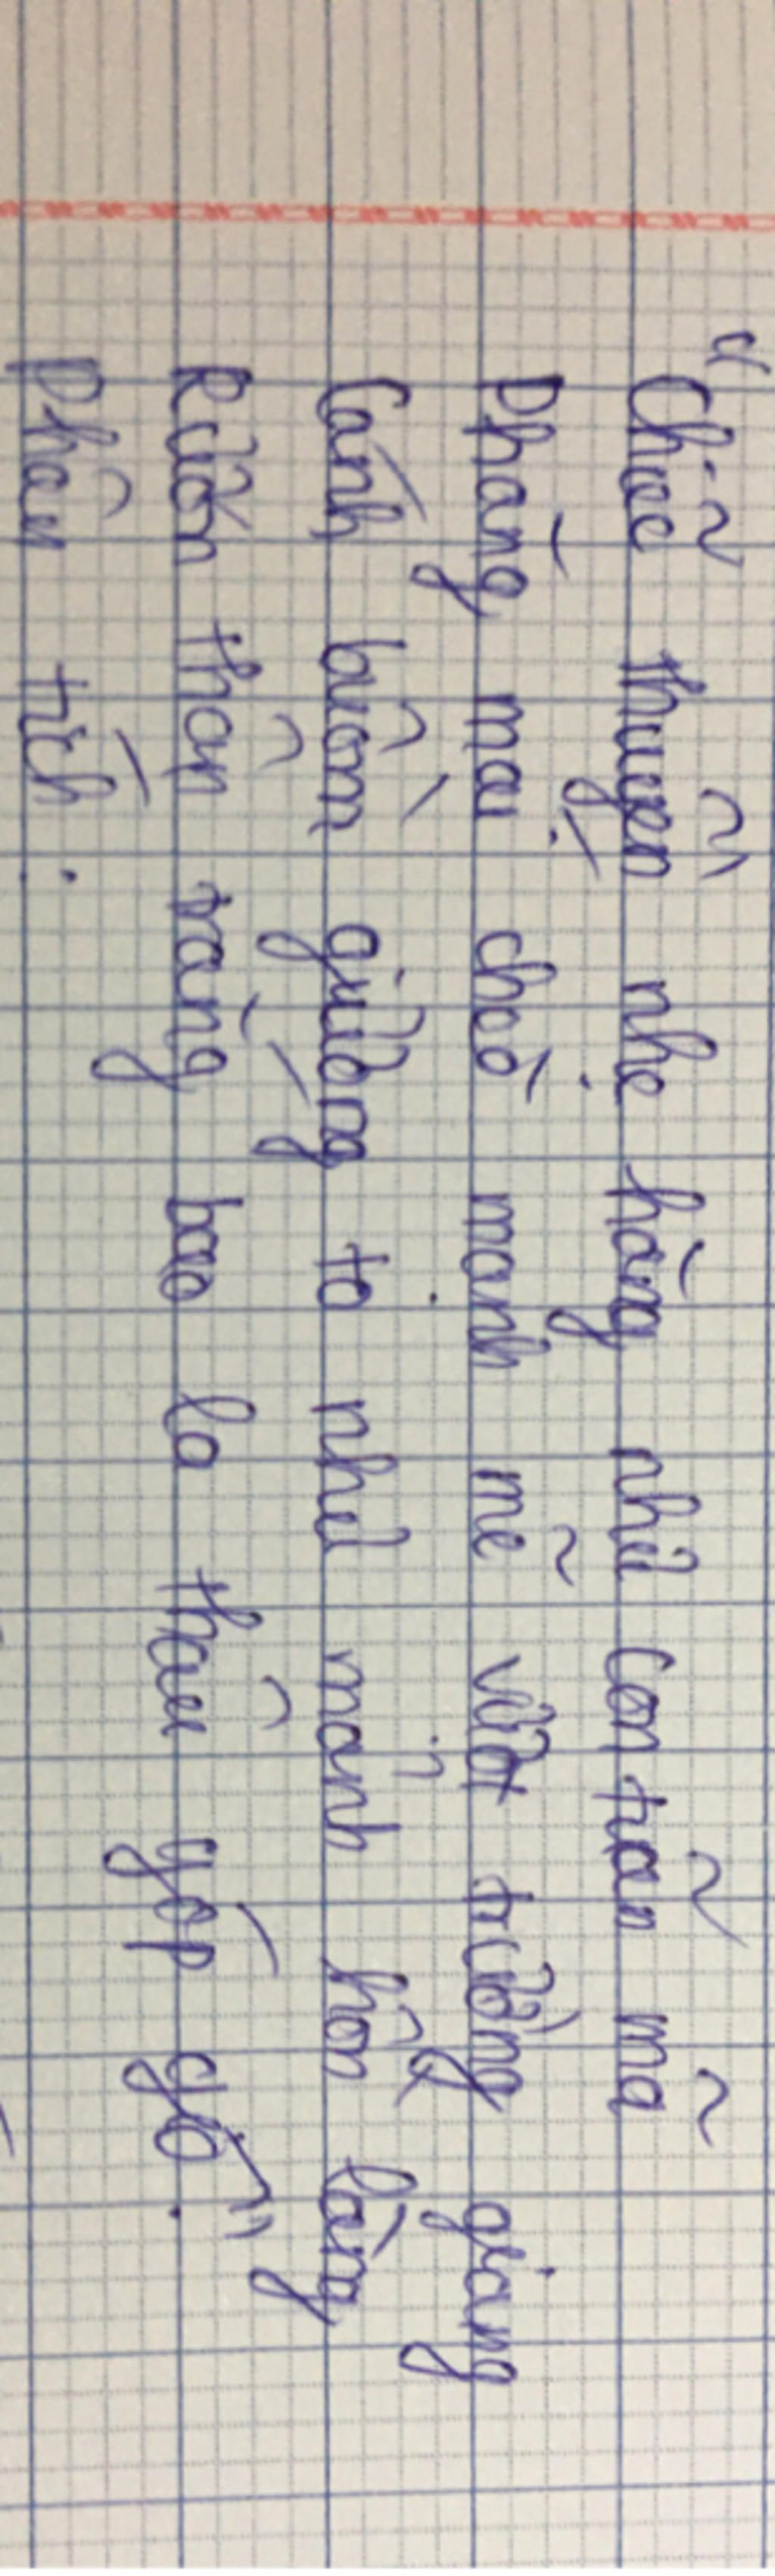 "Chiếc thuyền nhẹ hăng như con tuấn mã
Phăng mái chèo mạnh mẽ vượt trường giang
Cánh buồm giương to như mảnh hồn làng
Rướn thân trắng bao la thâu góp gió."
Phân tích :